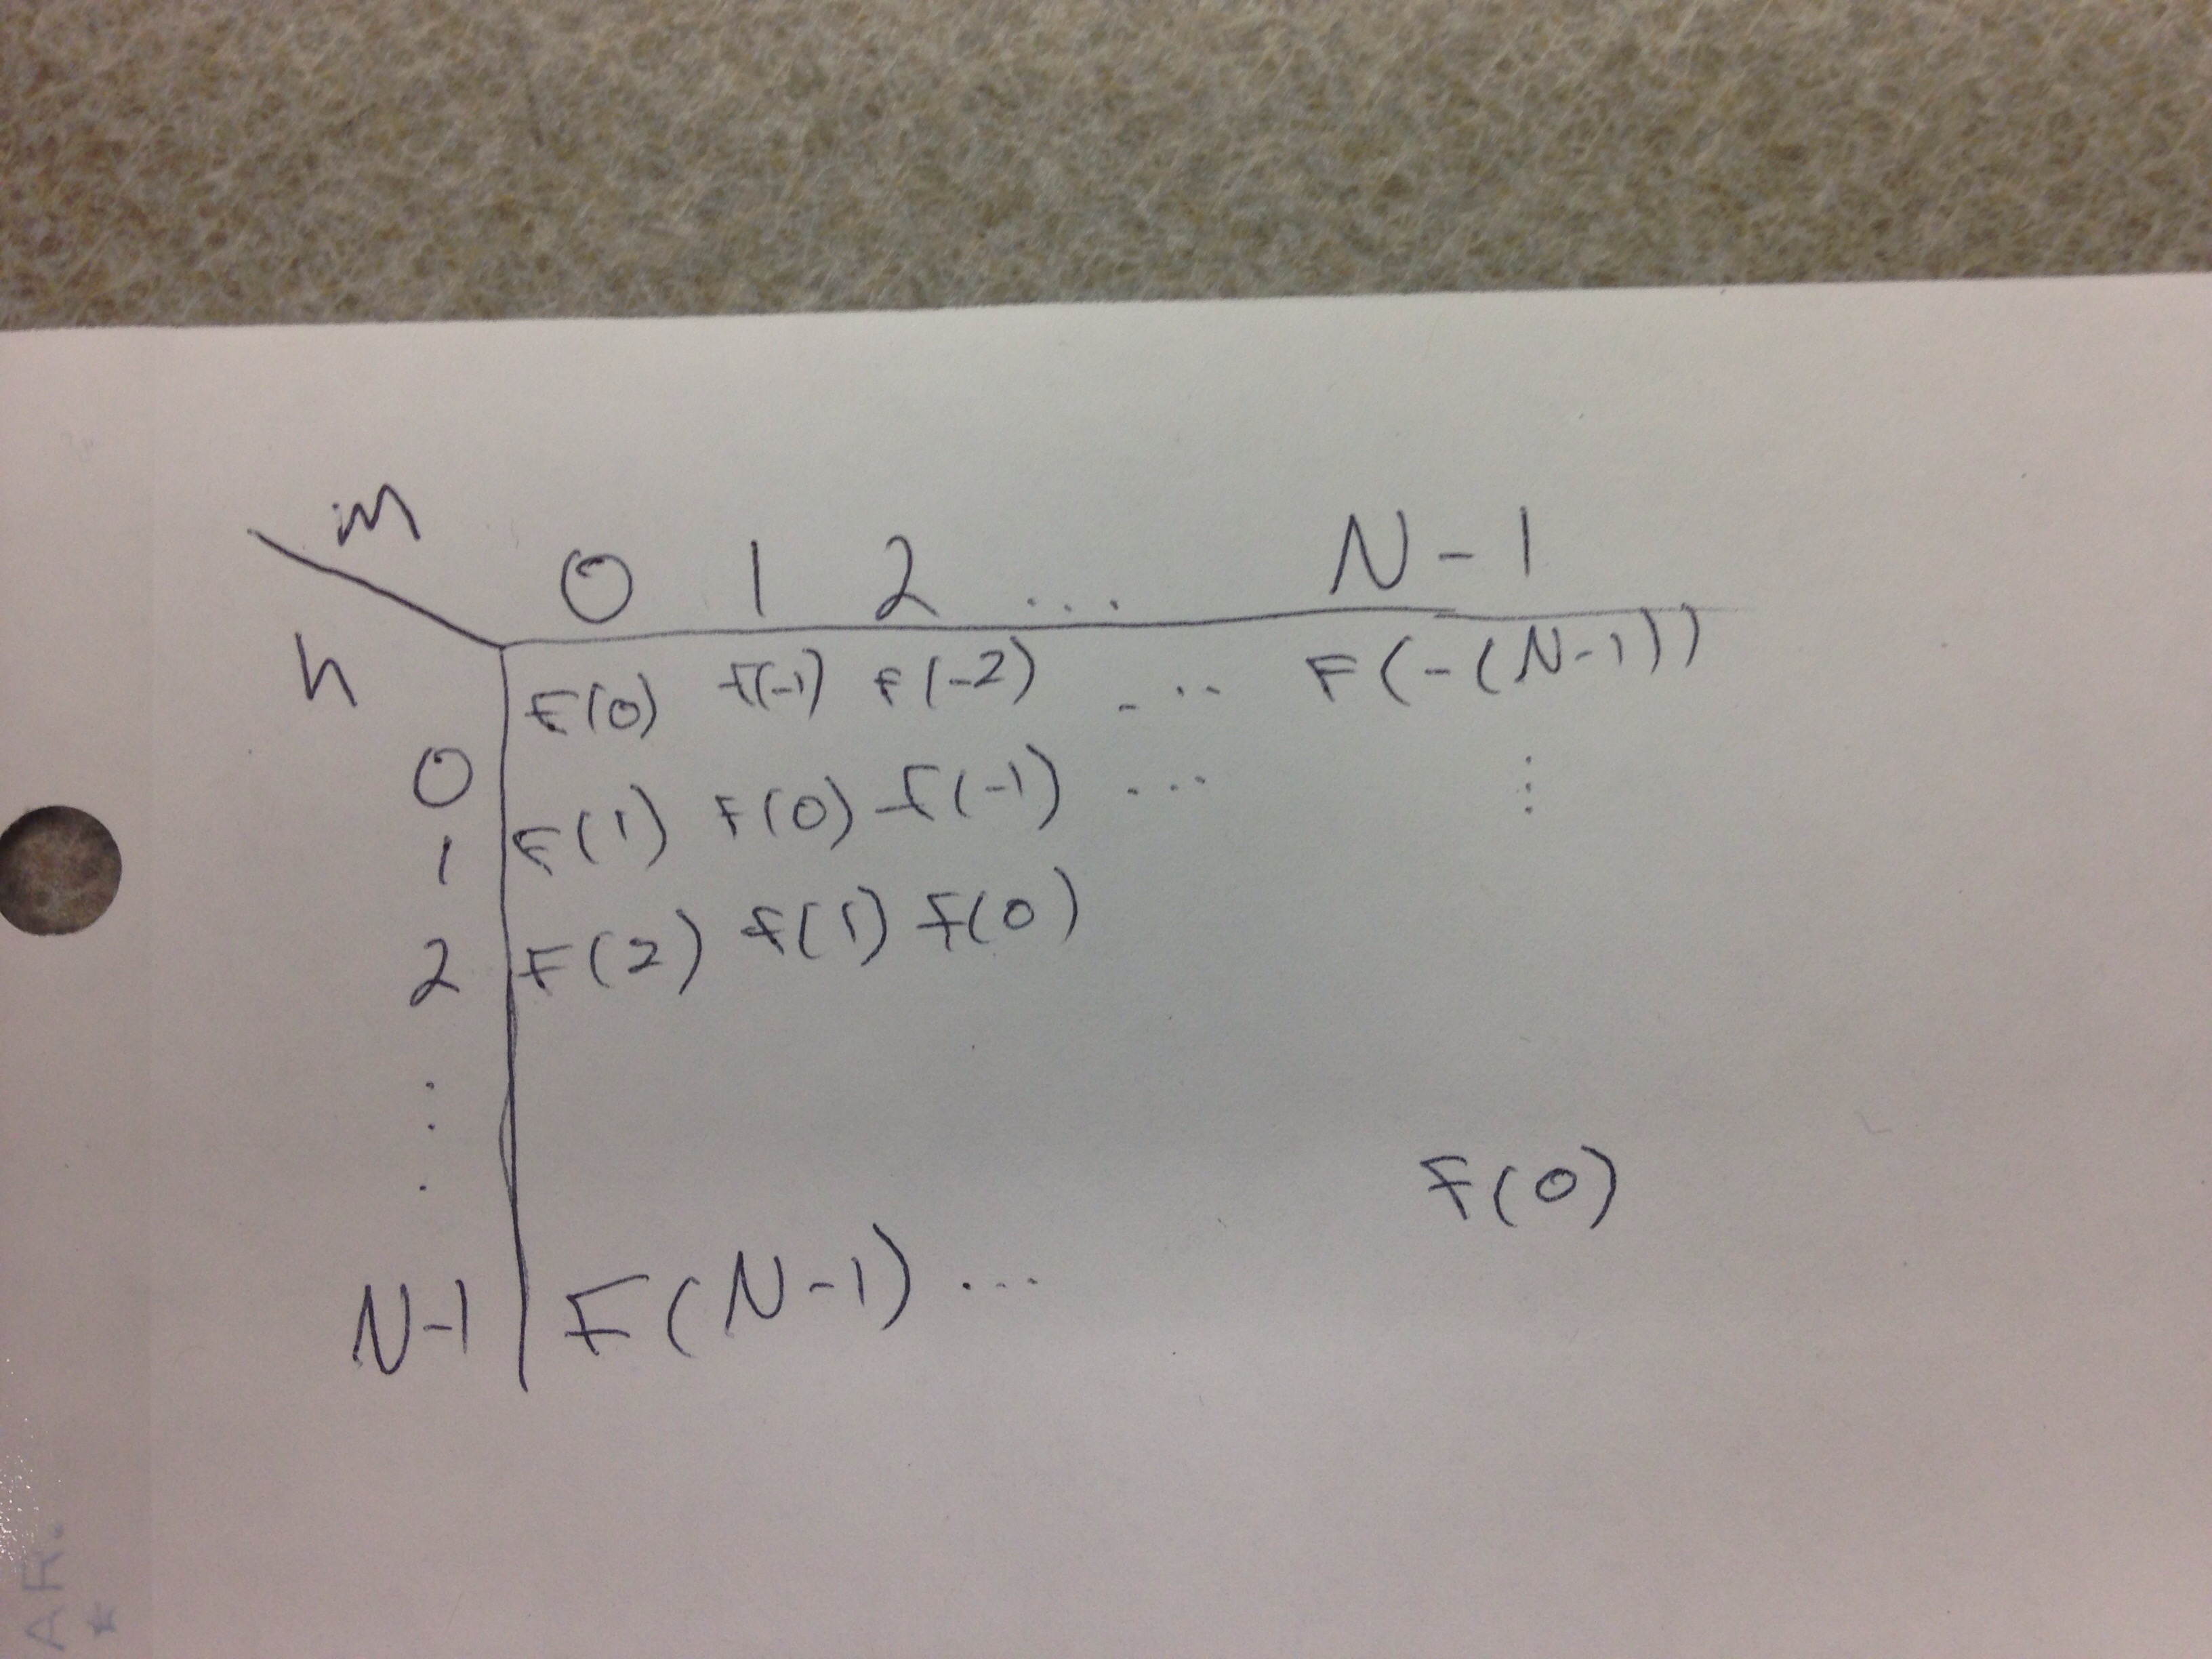 AR.
m 0 1 2 ... N-1
n
0 F(0) F(-1) F(-2) ... F(-(N-1))
1 F(1) F(0) F(-1) ... ...
2 F(2) F(1) F(0)
...
N-1 F(N-1) ... F(0)